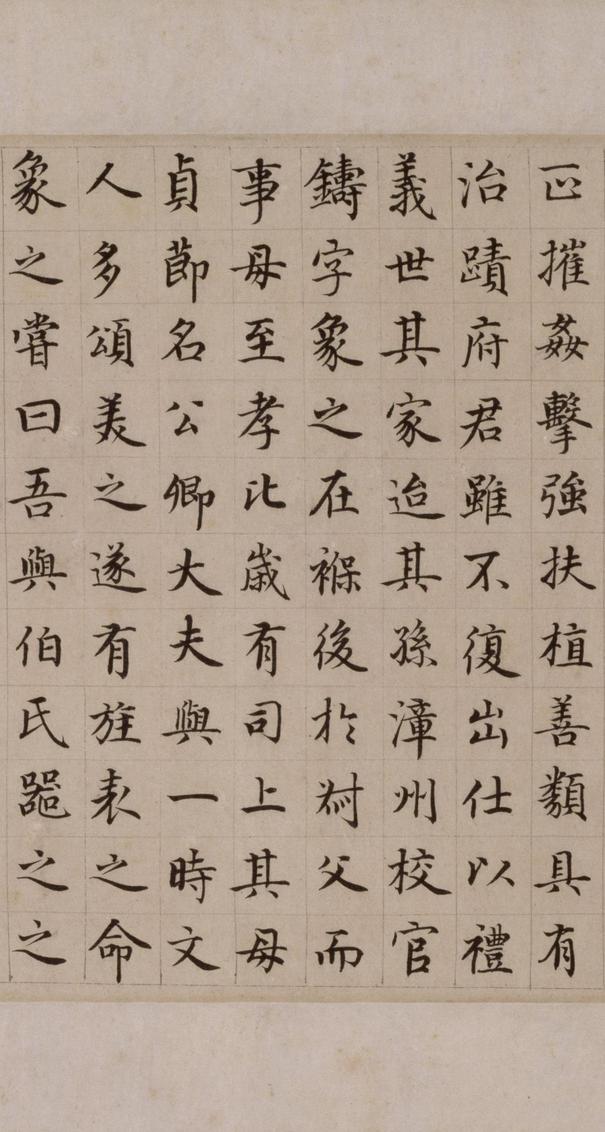 正摧姦擊強扶植善類具有
治蹟府君雖不復出仕以禮
義世其家迨其孫漳州校官
鑄字象之在褓後於父而
事母至孝比歲有司上其母
貞節名公卿大夫與一時文
人多頌美之遂有旌表之命
象之嘗曰吾與伯氏噐之之